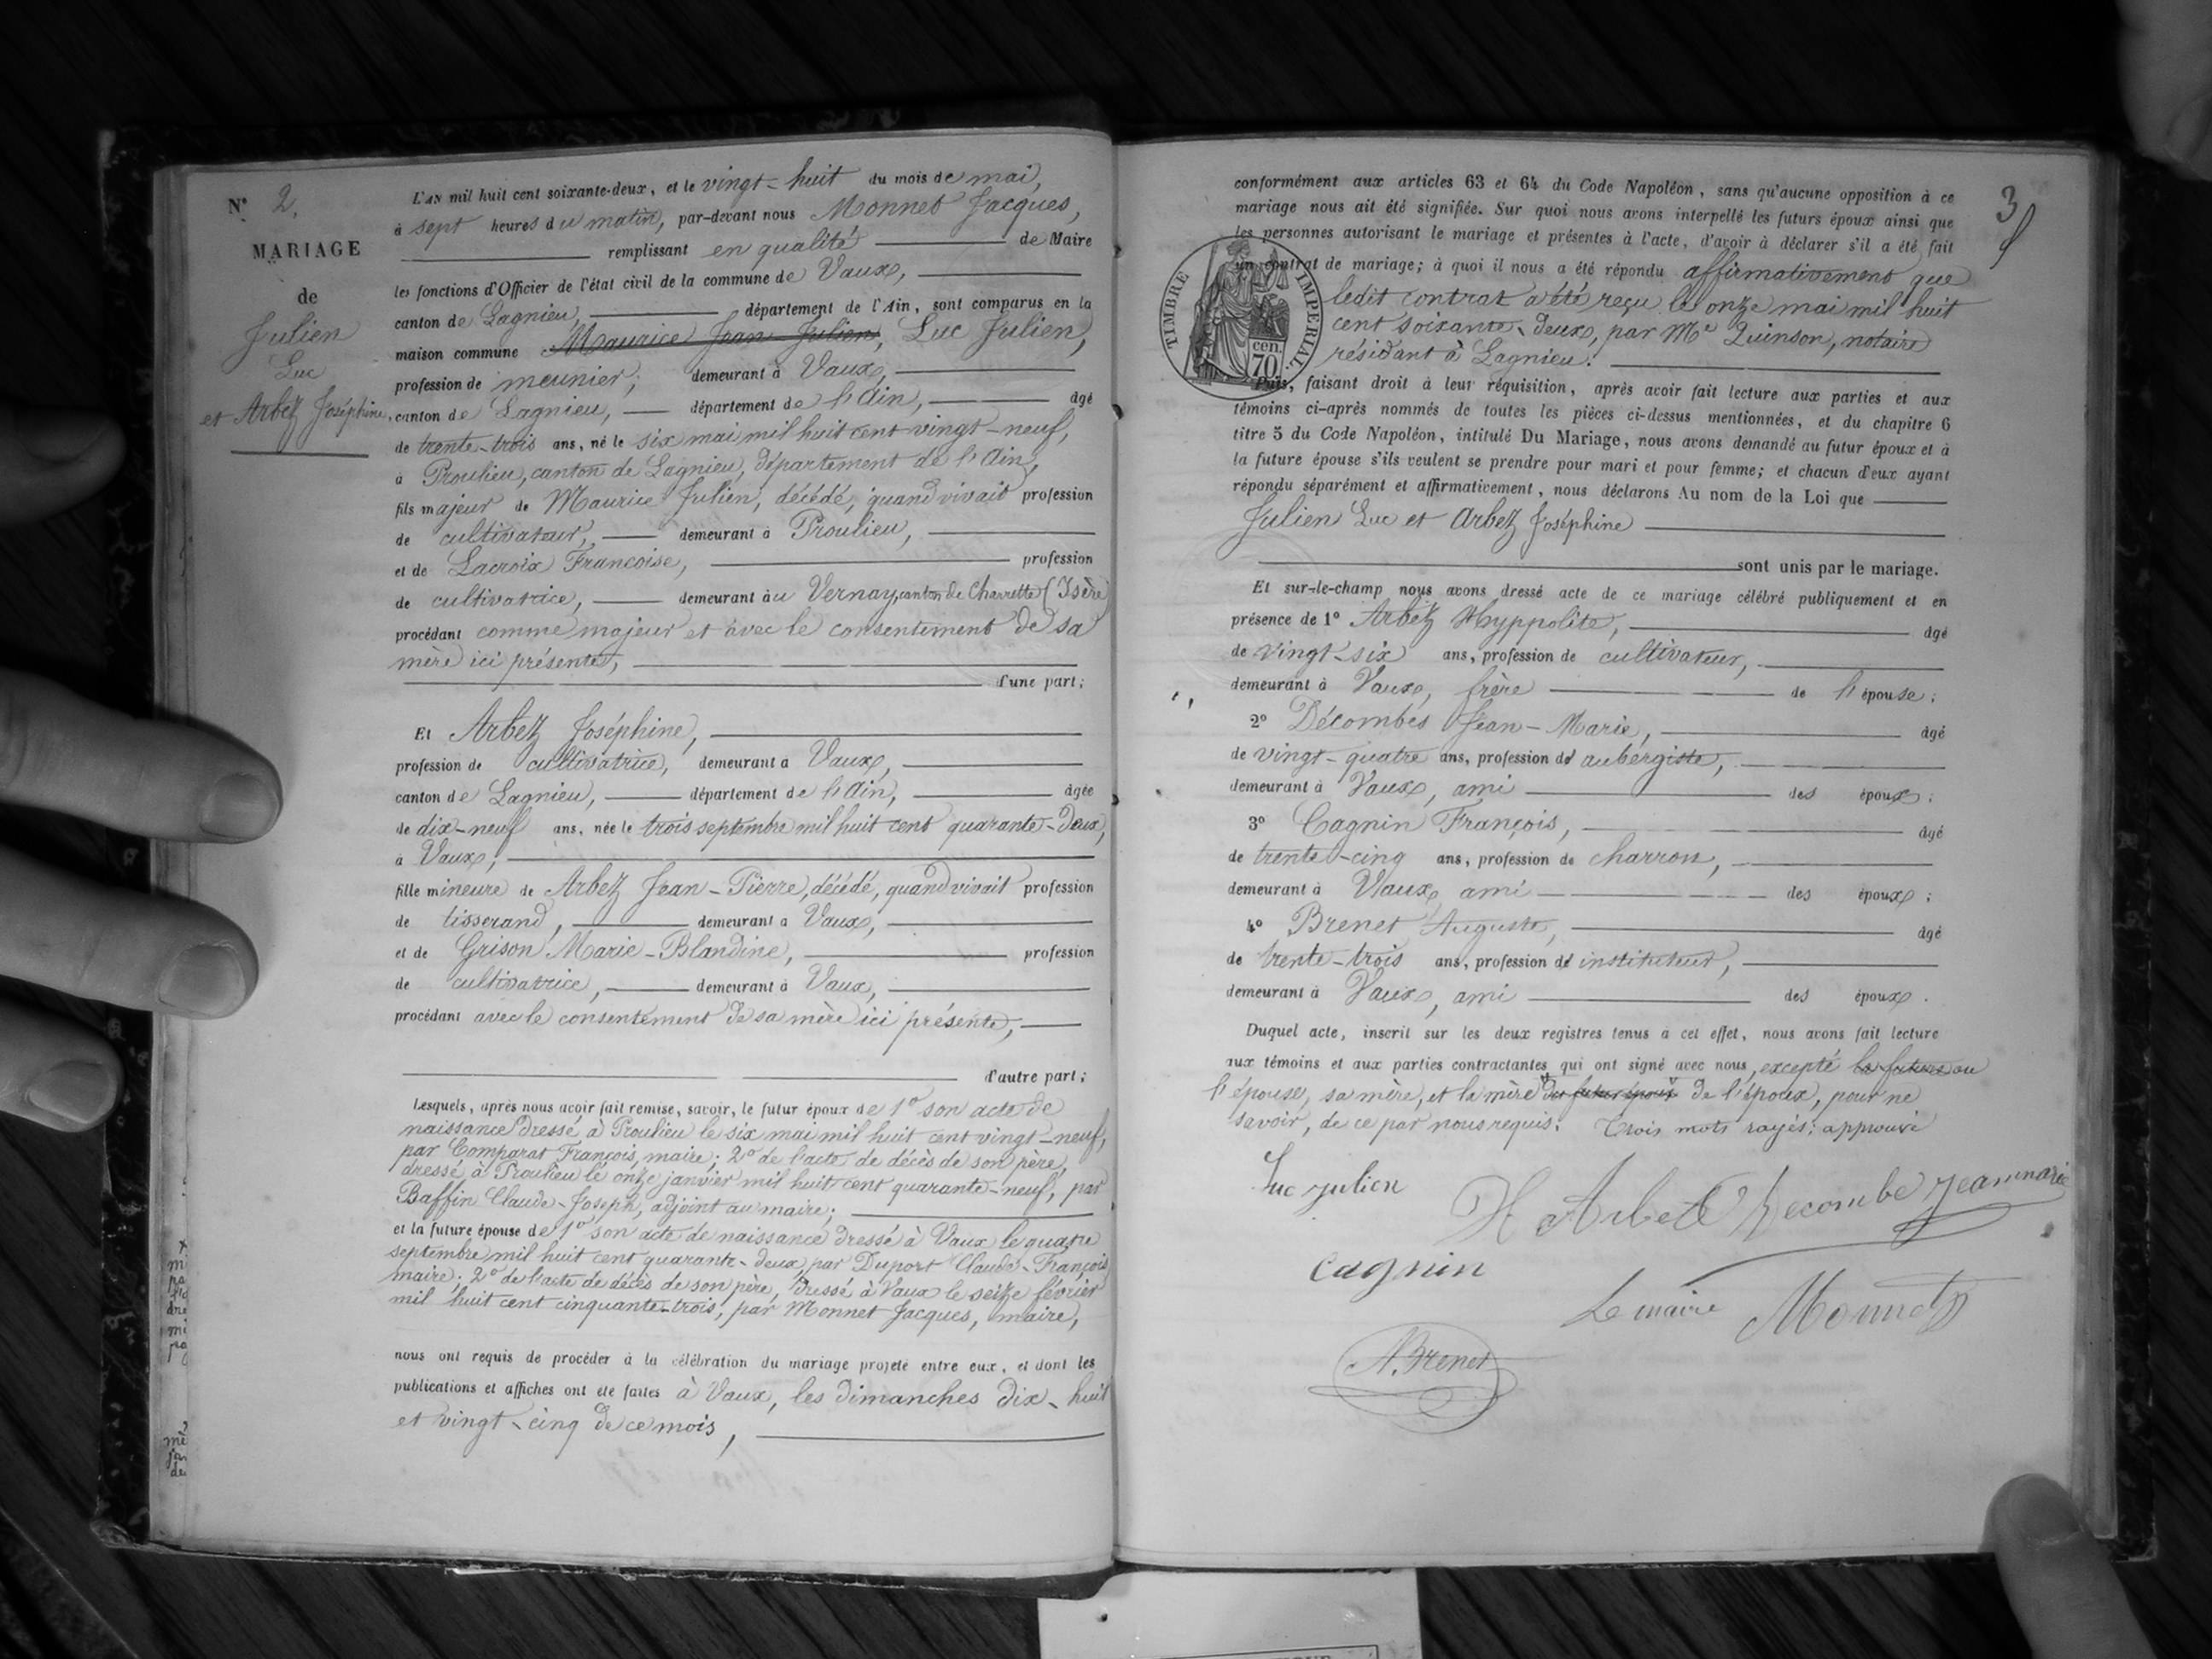 N° 2.
MARIAGE
de
Julien
Luc
et Arbez Joséphine.
L'AN mil huit cent soixante-deux, et le vingt-huit du mois de mai,
à sept heures du matin, par-devant nous Monnet Jacques,
remplissant en qualité de Maire
les fonctions d'Officier de l'état civil de la commune de Vaux,
canton de Lagnieu, département de l'Ain, sont comparus en la
maison commune Maurice Jean Julien, Luc Julien,
profession de meunier, demeurant à Vaux,
canton de Lagnieu, département de l'Ain, âgé
de trente-trois ans, né le six mai mil huit cent vingt-neuf,
à Proulieu, canton de Lagnieu, département de l'Ain,
fils majeur de Maurice Julien, décédé, quand vivait profession
de cultivateur, demeurant à Proulieu,
et de Lacroix Francoise, profession
de cultivatrice, demeurant au Vernay, canton de Charrette (Isère)
procédant comme majeur et avec le consentement de sa
mère ici présente,
d'une part;
Et Arbez Joséphine,
profession de cultivatrice, demeurant à Vaux,
canton de Lagnieu, département de l'Ain, âgée
de dix-neuf ans, née le trois septembre mil huit cent quarante-deux,
à Vaux,
fille mineure de Arbez Jean-Pierre, décédé, quand vivait profession
de tisserand, demeurant à Vaux,
et de Grison Marie-Blandine, profession
de cultivatrice, demeurant à Vaux,
procédant avec le consentement de sa mère ici présente,
d'autre part;
Lesquels, après nous avoir fait remise, savoir, le futur époux de 1° son acte de
naissance dressé à Proulieu le six mai mil huit cent vingt-neuf,
par Comparat François, maire; 2° de l'acte de décès de son père,
dressé à Proulieu le onze janvier mil huit cent quarante-neuf, par
Baffin Claude-Joseph, adjoint au maire;
et la future épouse de 1° son acte de naissance dressé à Vaux le quatre
septembre mil huit cent quarante-deux, par Duport Claude-François
maire; 2° de l'acte de décès de son père, dressé à Vaux le seize février
mil huit cent cinquante-trois, par Monnet Jacques, maire,
nous ont requis de procéder à la célébration du mariage projeté entre eux, et dont les
publications et affiches ont été faites à Vaux, les dimanches dix-huit
et vingt-cinq de ce mois,
3
conformément aux articles 63 et 64 du Code Napoléon, sans qu'aucune opposition à ce
mariage nous ait été signifiée. Sur quoi nous avons interpellé les futurs époux ainsi que
les personnes autorisant le mariage et présentes à l'acte, d'avoir à déclarer s'il a été fait
un contrat de mariage; à quoi il nous a été répondu affirmativement que
ledit contrat a été reçu le onze mai mil huit
cent soixante-deux, par Me Quinson, notaire
résidant à Lagnieu.
TIMBRE IMPERIAL.
cen.
70
Puis, faisant droit à leur réquisition, après avoir fait lecture aux parties et aux
témoins ci-après nommés de toutes les pièces ci-dessus mentionnées, et du chapitre 6
titre 5 du Code Napoléon, intitulé Du Mariage, nous avons demandé au futur époux et à
la future épouse s'ils veulent se prendre pour mari et pour femme; et chacun d'eux ayant
répondu séparément et affirmativement, nous déclarons Au nom de la Loi que
Julien Luc et Arbez Joséphine
sont unis par le mariage.
Et sur-le-champ nous avons dressé acte de ce mariage célébré publiquement et en
présence de 1° Arbez Hyppolite, âgé
de vingt-six ans, profession de cultivateur,
demeurant à Vaux, frère de l'épouse;
2° Décombes Jean-Marie, âgé
de vingt-quatre ans, profession d'aubergiste,
demeurant à Vaux, ami des époux;
3° Cagnin François, âgé
de trente-cinq ans, profession de charron,
demeurant à Vaux, ami des époux;
4° Brenet Auguste, âgé
de trente-trois ans, profession d'instituteur,
demeurant à Vaux, ami des époux.
Duquel acte, inscrit sur les deux registres tenus à cet effet, nous avons fait lecture
aux témoins et aux parties contractantes qui ont signé avec nous, excepté
l'épouse, sa mère, et la mère du futur époux de l'époux, pour ne
savoir, de ce par nous requis. Trois mots rayés: approuvé
Luc julien
H Arbez Decombe jeanmarie
cagnin
Le maire Monnet
A. Brenet